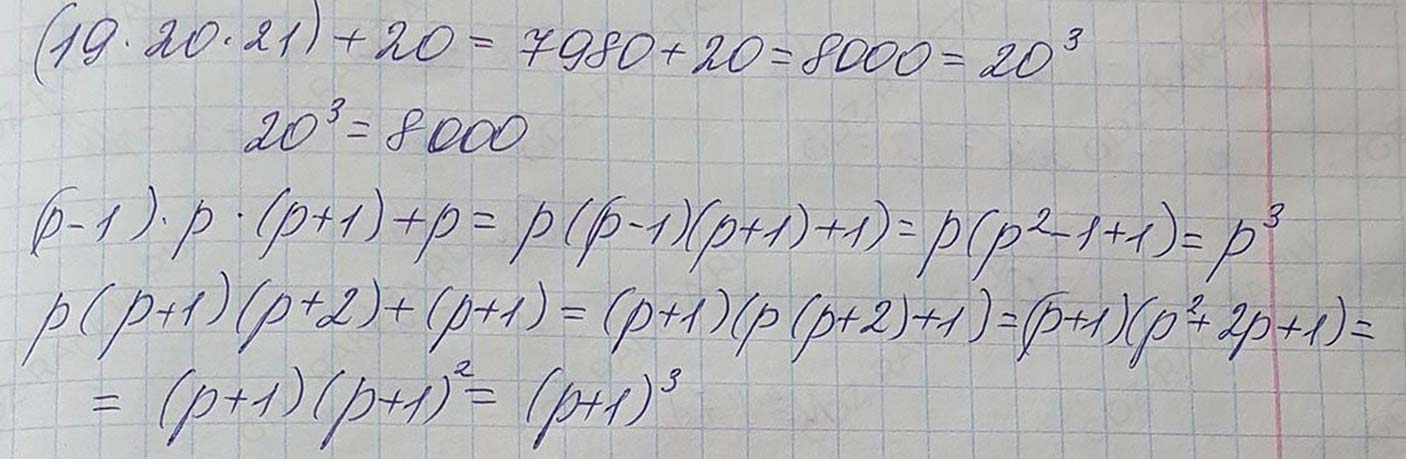 (19·20·21)+20=7980+20=8000=20³
20³=8000
(p-1)·p·(p+1)+p=p((p-1)(p+1)+1)=p(p²-1+1)=p³
p(p+1)(p+2)+(p+1)=(p+1)(p(p+2)+1)=(p+1)(p²+2p+1)=
=(p+1)(p+1)²=(p+1)³